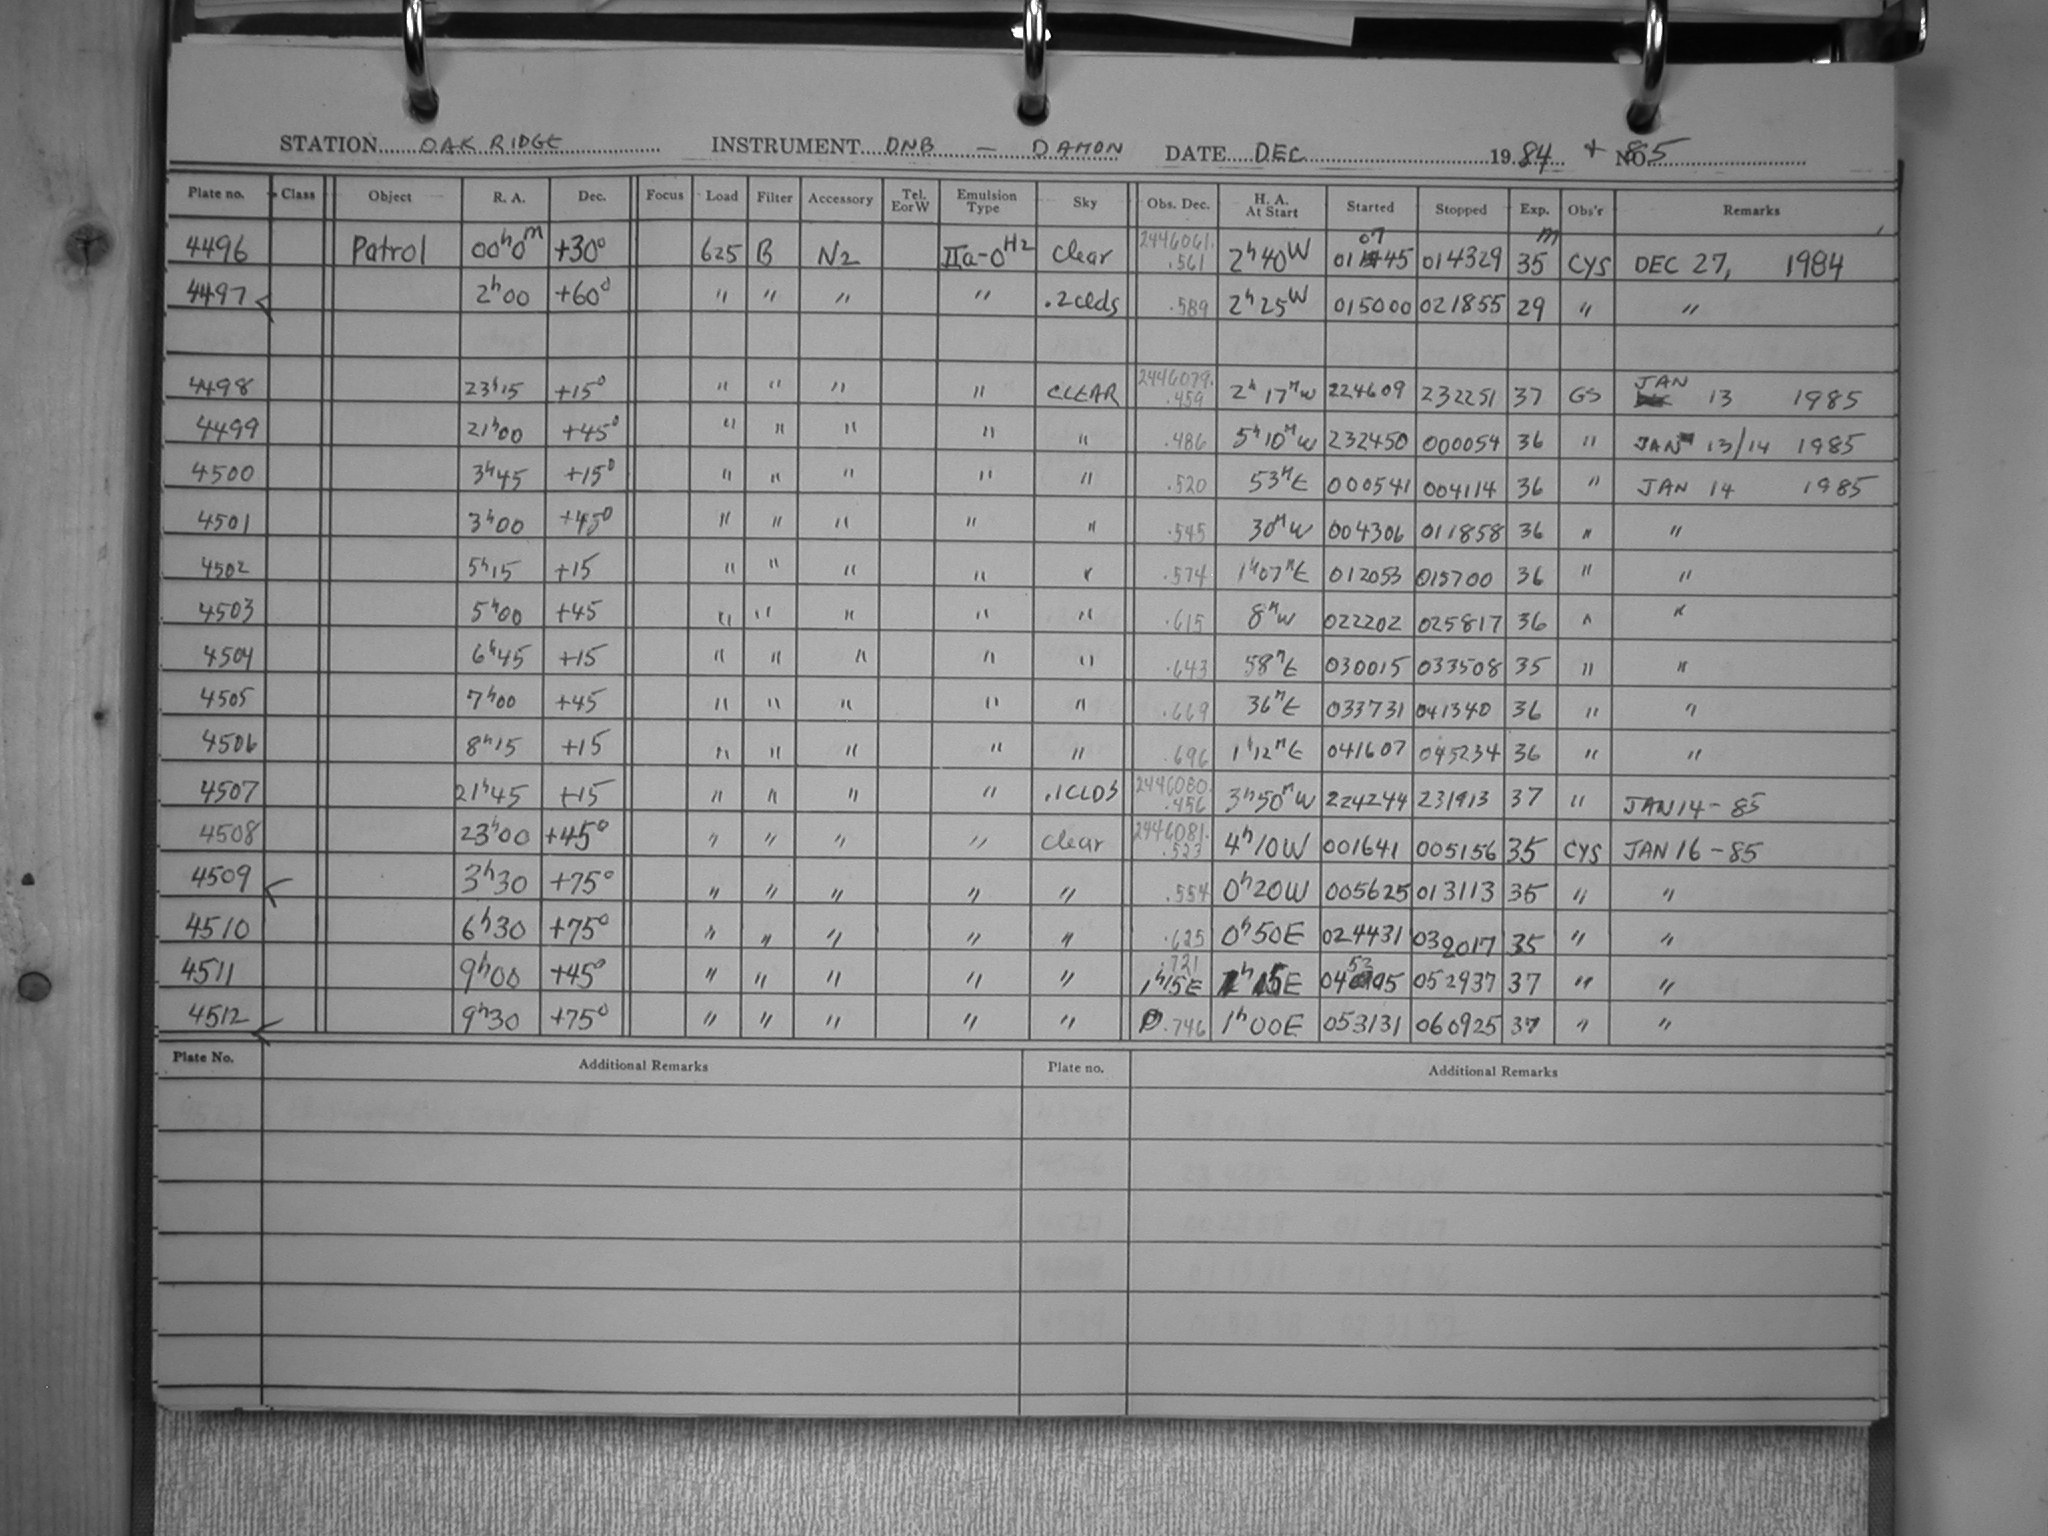 STATION OAK RIDGE INSTRUMENT DNB – DAMON DATE DEC 19 84 + 85 NO.
Plate no. Class Object R. A. Dec. Focus Load Filter Accessory Tel. E or W Emulsion Type Sky Obs. Dec. H. A. At Start Started Stopped Exp. Obs'r Remarks
4496 Patrol 00h0m +30° 625 B N2 IIa-O H2 Clear 2446061.561 2h40W 010745 014329 35m CYS DEC 27, 1984
4497 < 2h00 +60° " " " " .2clds .589 2h25W 015000 021855 29 " "
4498 23h15 +15° " " " " CLEAR 2446079.459 2h17mW 224609 232251 37 GS JAN 13 1985
4499 21h00 +45° " " " " " .486 5h10mW 232450 000054 36 " JAN 13/14 1985
4500 3h45 +15° " " " " " .520 53mE 000541 004114 36 " JAN 14 1985
4501 3h00 +45° " " " " " .545 30mW 004306 011858 36 " "
4502 5h15 +15 " " " " " .574 1h07mE 012053 015700 36 " "
4503 5h00 +45 " " " " " .615 8mW 022202 025817 36 " "
4504 6h45 +15 " " " " " .643 58mE 030015 033508 35 " "
4505 7h00 +45 " " " " " .669 36mE 033731 041340 36 " "
4506 8h15 +15 " " " " " .696 1h12mE 041607 045234 36 " "
4507 21h45 +15 " " " " .1CLDS 2446080.456 3h50mW 224244 231913 37 " JAN 14-85
4508 23h00 +45° " " " " Clear 2446081.523 4h10W 001641 005156 35 CYS JAN 16-85
4509 < 3h30 +75° " " " " " .554 0h20W 005625 013113 35 " "
4510 6h30 +75° " " " " " .625 0h50E 024431 032017 35 " "
4511 9h00 +45° " " " " " .721 1h15E 1h15E 045305 052937 37 " "
4512 < 9h30 +75° " " " " " .746 1h00E 053131 060925 37 " "
Plate No. Additional Remarks Plate no. Additional Remarks